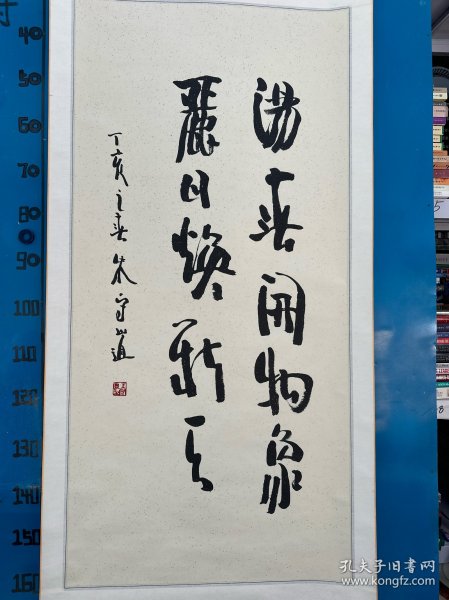 陽春開物象
麗日焕新天
丁亥之春朱守道
40
50
60
70
80
90
100
110
120
130
140
150
160
5
8
孔夫子旧书网
www.kongfz.com